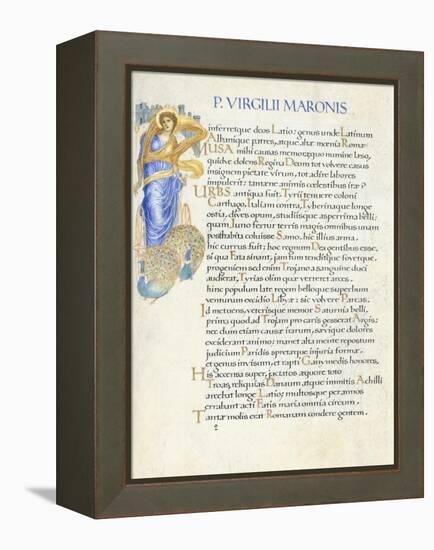 P. VIRGILII MARONIS
inferretque deos Latio: genus unde Latinum
Albanique patres, atque altæ mœnia Romæ
MUSA mihi causas memora, quo numine læso,
quidve dolens Regina Deum tot volvere casus
insignem pietate virum, tot adire labores
impulerit: tantæne animis cœlestibus iræ?
URBS antiqua fuit, Tyrii tenuere coloni
Carthago, Italiam contra, Tyberinaque longe
ostia, dives opum, studiisque asperrima belli:
quam Juno fertur terris magis omnibus unam
posthabita coluisse Samo. hic illius arma.
hic currus fuit; hoc regnum Dea gentibus esse.
si qua Fata sinant, jam tum tenditque fovetque.
progeniem sed enim Trojano a sanguine duci
audierat, Tyrias olim quæ verteret arces.
hinc populum late regem belloque superbum
venturum excidio Libyæ: sic volvere Parcas.
Id metuens, veterisque memor Saturnia belli,
prima quod ad Trojam pro caris gesserat Argis:
nec dum etiam causæ irarum, sævique dolores
exciderant animo: manet alta mente repostum
judicium Paridis spretæque injuria formæ.
et genus invisum, et rapti Ganymedis honores,
His accensa super, jactatos æquore toto
Troas, reliquias Danaum, atque immitis Achilli
arcebat longe Latio; multosque per annos
errabant acti Fatis maria omnia circum.
Tantæ molis erat Romanam condere gentem.
2